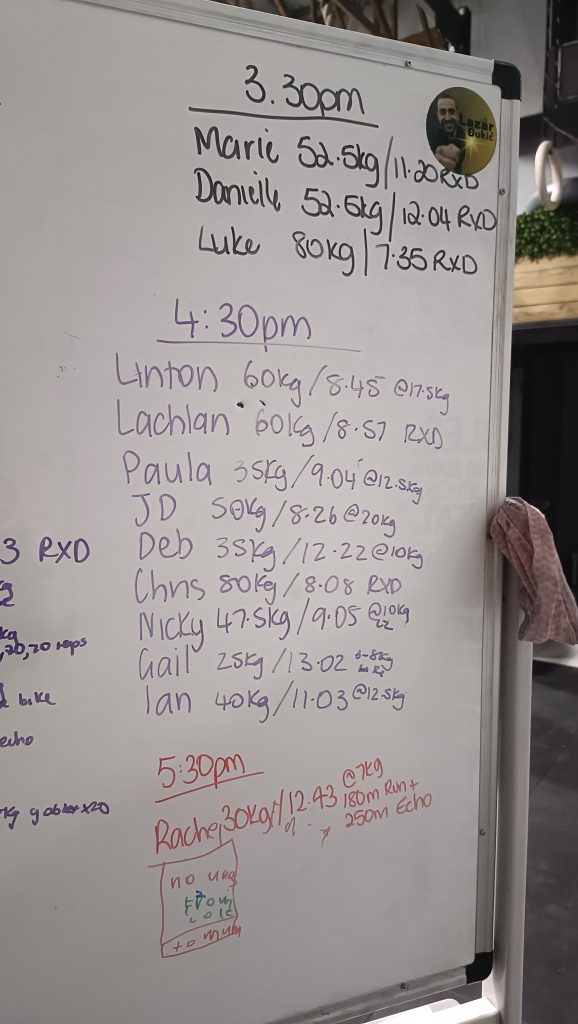 3.30pm
Lazar
Đukić
Marie 52.5kg/11.20 RXD
Danielle 52.5kg/12.04 RXD
Luke 80kg/7.35 RXD
4:30pm
Linton 60kg/8.45 @17.5kg
Lachlan 60kg/8.57 RXD
Paula 35kg/9.04 @12.5kg
JD 50kg/8.26 @20kg
3 RXD
Deb 35kg/12.22 @10kg
Chris 80kg/8.08 RXD
kg
Nicky 47.5kg/9.05 @10kg
22
reps
Gail 25kg/13.02
bike
Ian 40kg/11.03 @12.5kg
echo
5:30pm
@7kg
Rachel 30kg/12.43 180m Run +
250m Echo
x20
no
to mum